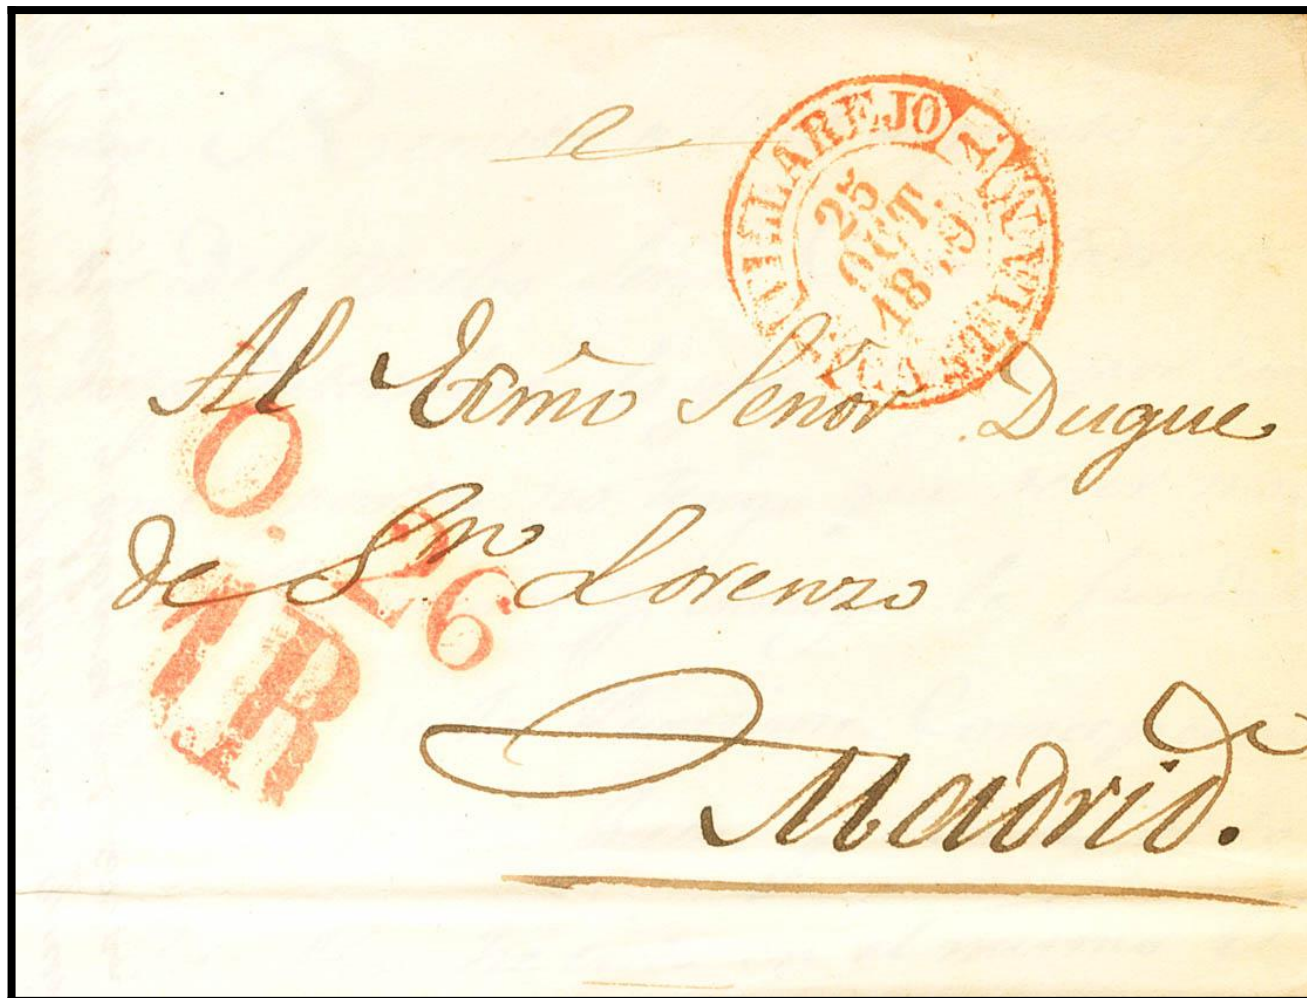 25
OCT.
18
Al Exmo Señor Duque
de Sn Lorenzo
O.
26
1R
Madrid.